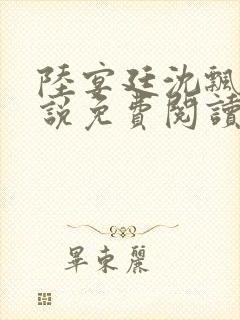 陸宴廷沈飄
說免費閱讀
畢東麗